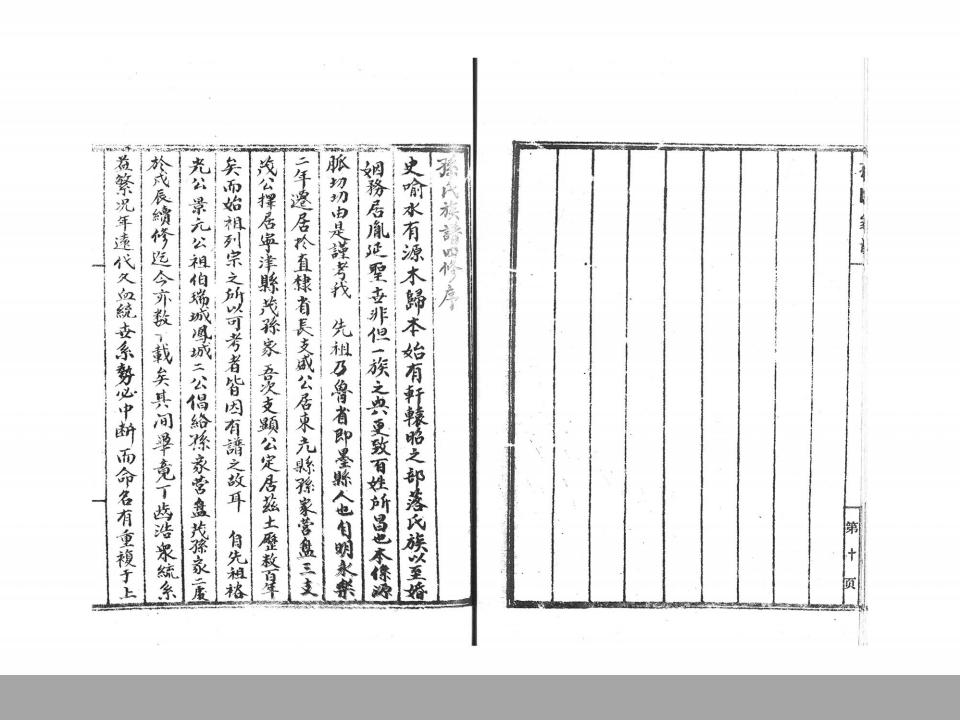 孫氏族譜四修序
史喻水有源木歸本始有軒轅昭之部落氏族以至婚
姻務居胤延聖世非但一族之典更致百姓所昌也本條源
脈切切由是謹考我 先祖乃魯省即墨縣人也自明永樂
二年遷居於直棣省長支盛公居東光縣孫家营盘三支
茂公擇居寧津縣茂孫家吾次支顯公定居兹土歷数百年
矣而始祖列宗之所以可考者皆因有譜之故耳 自先祖格
光公景元公祖伯瑞城鳳城二公倡給孫家营盘茂孫家二度
於戊辰續修迄今亦数丁載矣其间畢竟丁齒浩衆統系
益繁况年遠代久血統世系勢必中断而命名有重複于上
第十页